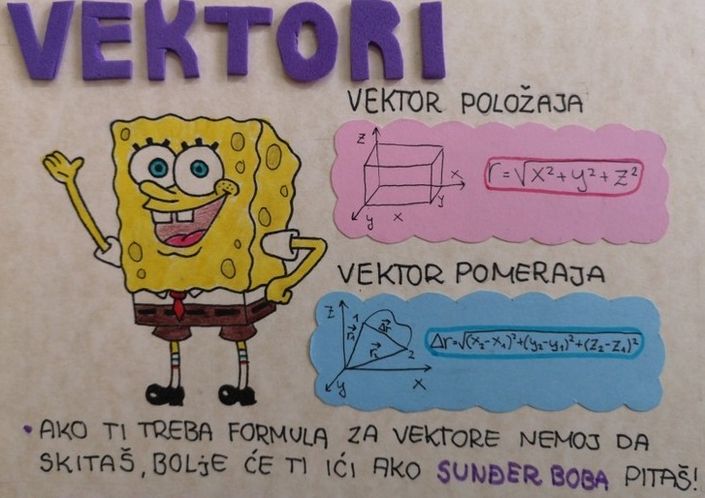 VEKTORI
VEKTOR POLOŽAJA
z
x
y
x
y
r = √x² + y² + z²
VEKTOR POMERAJA
z
1
r⃗₁
Δr⃗
r⃗₂
2
y
x
Δr = √(x₂-x₁)²+(y₂-y₁)²+(z₂-z₁)²
• AKO TI TREBA FORMULA ZA VEKTORE NEMOJ DA
SKITAŠ, BOLJE ĆE TI IĆI AKO SUNĐER BOBA PITAŠ!